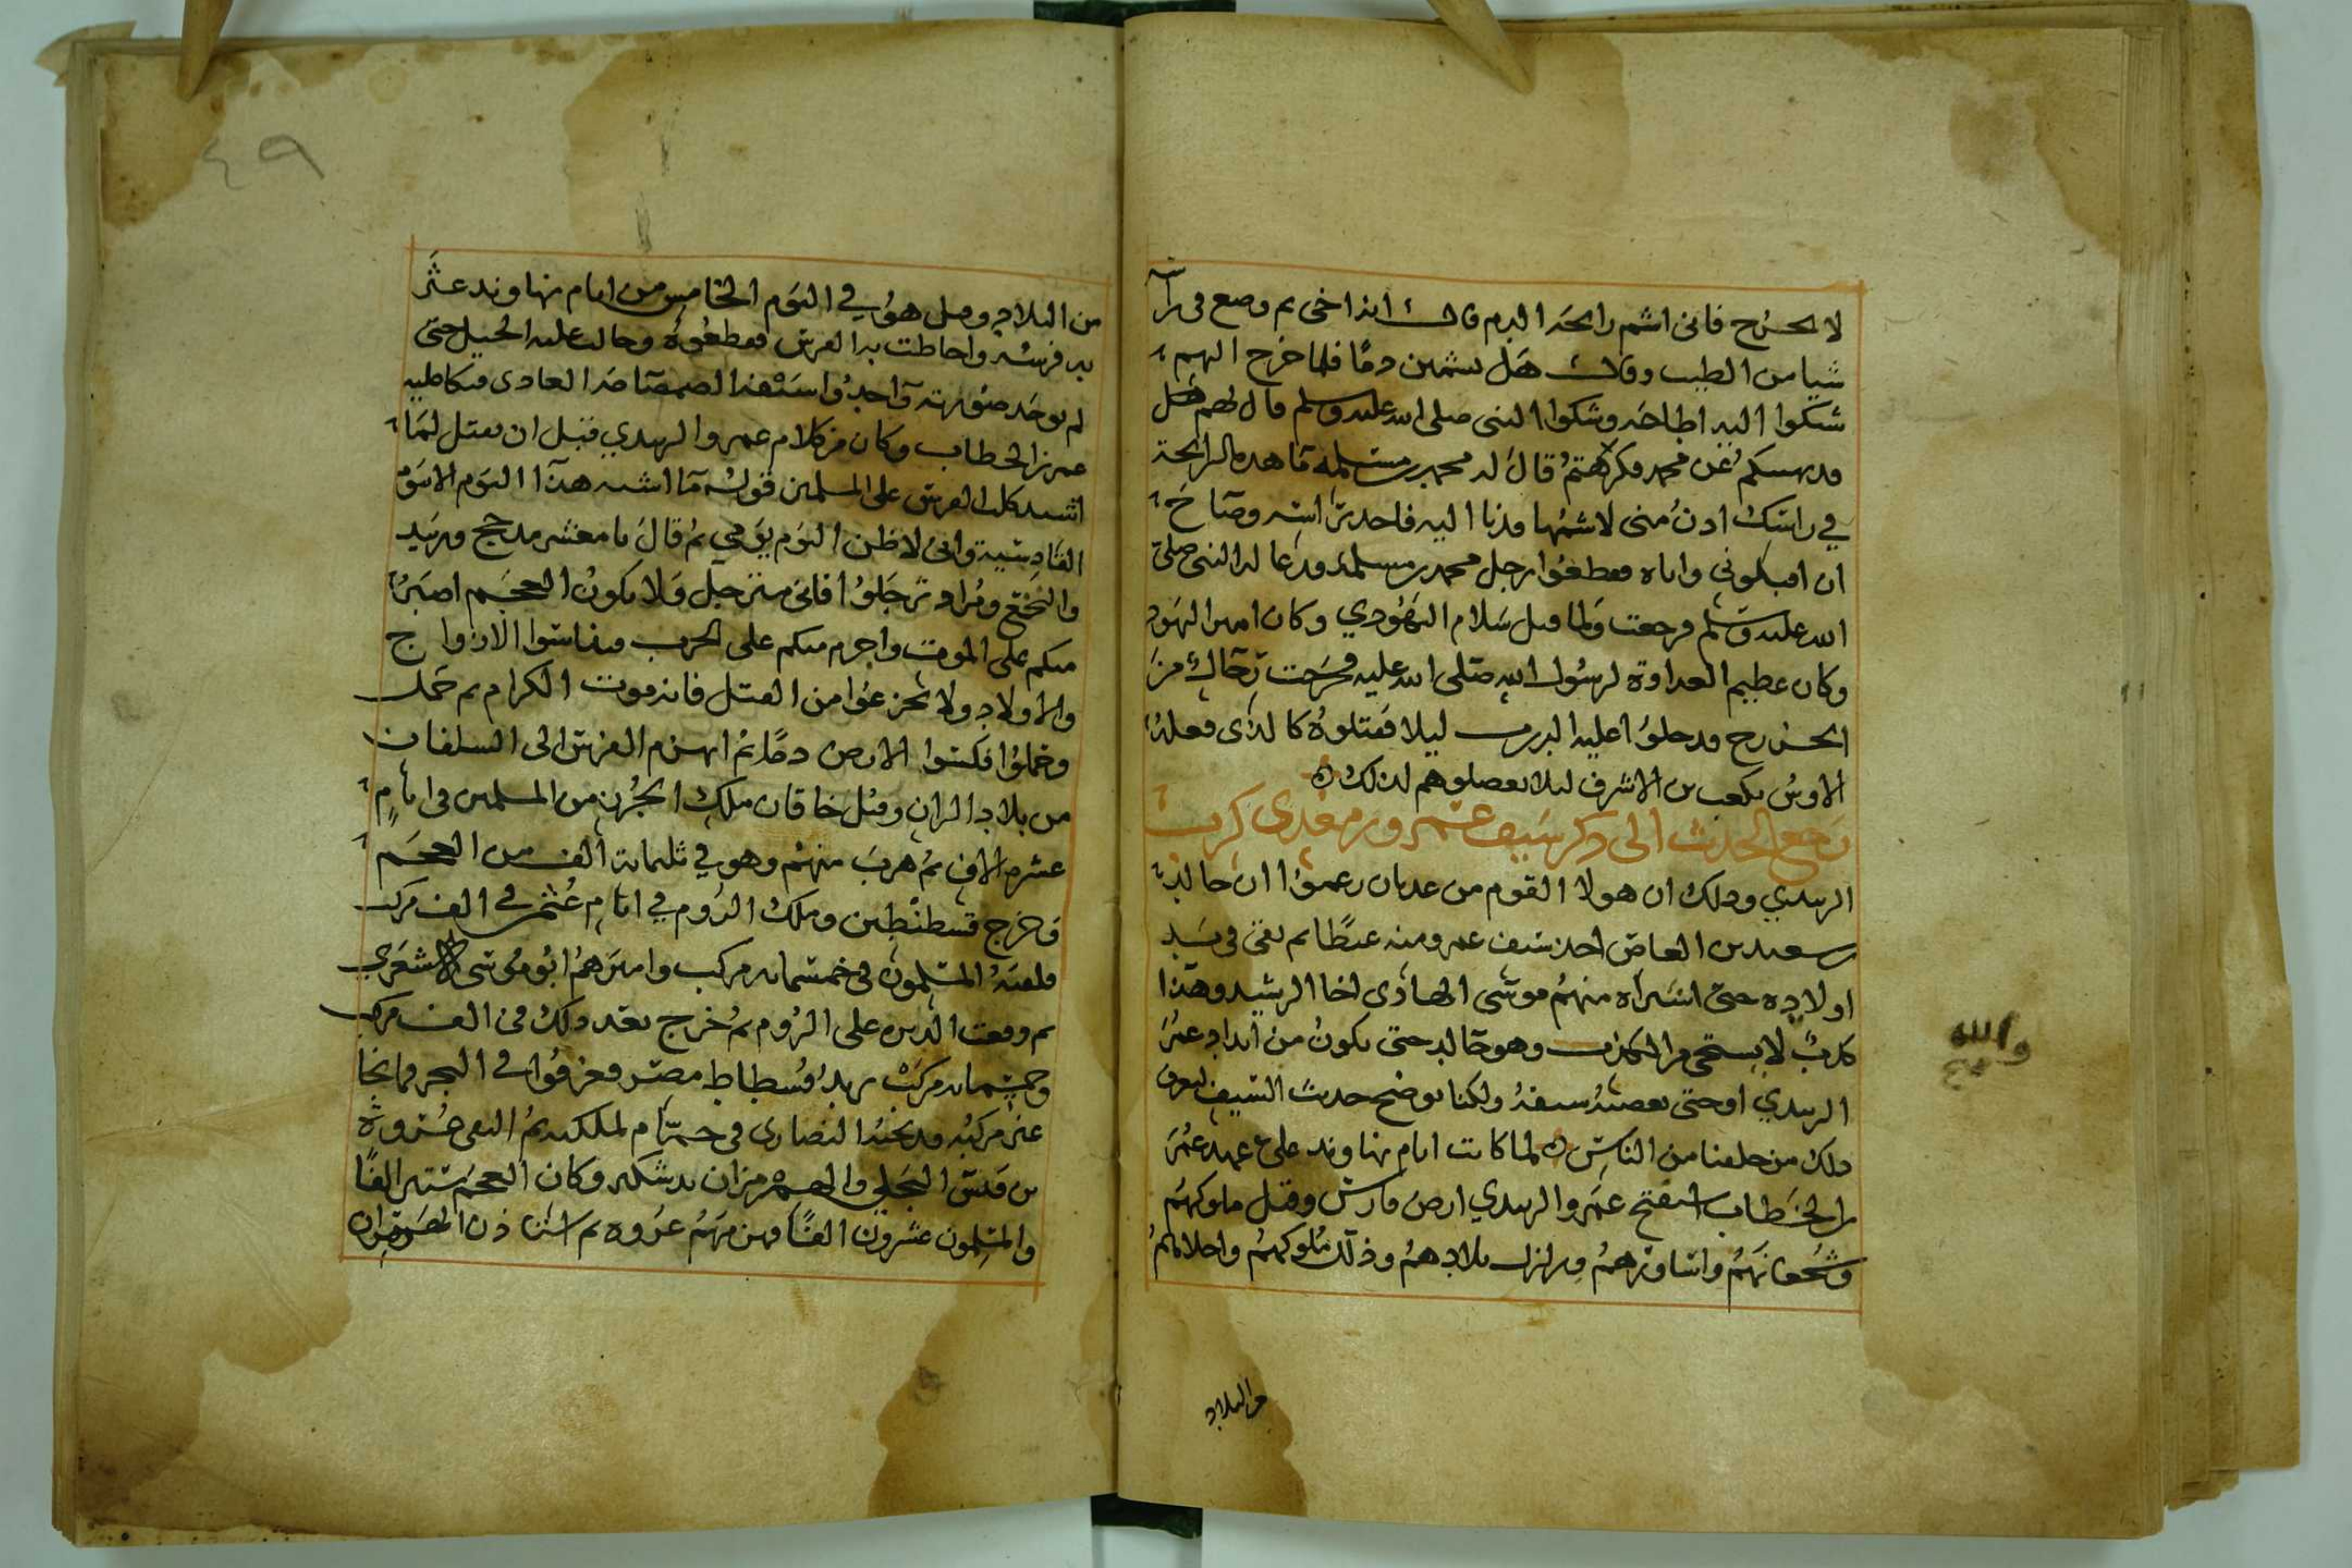 لا تخرج فاني اشم رائحة الدم قال انه اخي ثم وضع في راسه
شيا من الطيب وقال هل تشمين دما فلما خرج اليهم
شكوا اليه وشكوا النبي صلى الله عليه وسلم قال لهم هل
محمد فكرهتم قال له محمد بن مسلمه ما هذه الرائحة
في راسك ادن مني لاشمها فدنا اليه فاخذ براسه وصاح
ان اقتلوني واياه فقطعوا رجل محمد بن مسلمة ودعا له النبي صلى
الله عليه وسلم فرجعت ولما قتل سلام اليهودي وكان امير اليهود
وكان عظيم العداوة لرسول الله صلى الله عليه فخرجت رجال من
الخزرج فدخلوا عليه الدرب ليلا فقتلوه كالذي فعلت
الاوس بكعب بن الاشرف ليلا يفضلوهم لذلك
رجع الحديث الى ذكر سيف عمرو بن معدي كرب
الزبيدي وذلك ان هولا القوم من عدنان زعموا ان خالد
بن سعيد بن العاص اخذ سيف عمرو منه ثم بقي في يد
اولاده حتى اشتراه منهم موسى الهادي اخا الرشيد وهذا
كذب لا يستحي من الكذب وهو خالد حتى يكون من انداد عمرو
الزبيدي او حتى سيفه ولكنا نوضح حديث السيف ليعرف
ذلك من خلفنا من الناس لما كانت ايام نهاوند على عهد عمر
بن الخطاب استفتح عمرو الزبيدي ارض فارس وقتل ملوكهم
وشجعانهم واساورهم وزلزل بلادهم وذلل ملوكهم واجلاهم
من البلاد
والله
٤٩
من البلاد وصل هو في اليوم الخامس من ايام نهاوند عثر
به فرسه واحاطت به الفرس فقطعوه وحالت عليه الخيل حتى
لم يوجد صورته واحد واستنقذ الصمصامة العادي
عمر بن الخطاب وكان من كلام عمرو الزبيدي قبل ان يقتل لما
اشتد كلب الفرس على المسلمين قوله ما اشبه هذا اليوم الا يوم
القادسية واني لاظن اليوم يومي ثم قال يا معشر مذحج وزبيد
والنخع ومراد ترجلوا فاني مترجل ولا يكون العجم اصبر
منكم على الموت واجرم منكم على الحرب وتناسوا الازواج
والاولاد ولا تجزعوا من القتل فانه موت الكرام ثم حمل
وحملوا فكسوا الارض دما ثم انهزم الفرس الى
من بلاد الران وقتل خاقان ملك الخزر من المسلمين في ايام
عشرة الاف ثم هرب منهم وهو في ثلثمائة الف من العجم
وخرج قسطنطين وملك الروم في ايام عثمن في الف مركب
فلقيه المسلمون في خمسمائه مركب واميرهم ابو موسى الاشعري
ثم وقعت على الروم ثم خرج بعد ذلك في الف مركب
وخمسمائه مركب يريد فسطاط مصر فغرقوا في البحر وما نجا
غير مركبه النصارى في حمام لملكته ثم التقى عروة
بن قيس البجلي والهرمزان وكان العجم ستين الفا
والمسلمون عشرون الفا فهزمهم عروه ثم